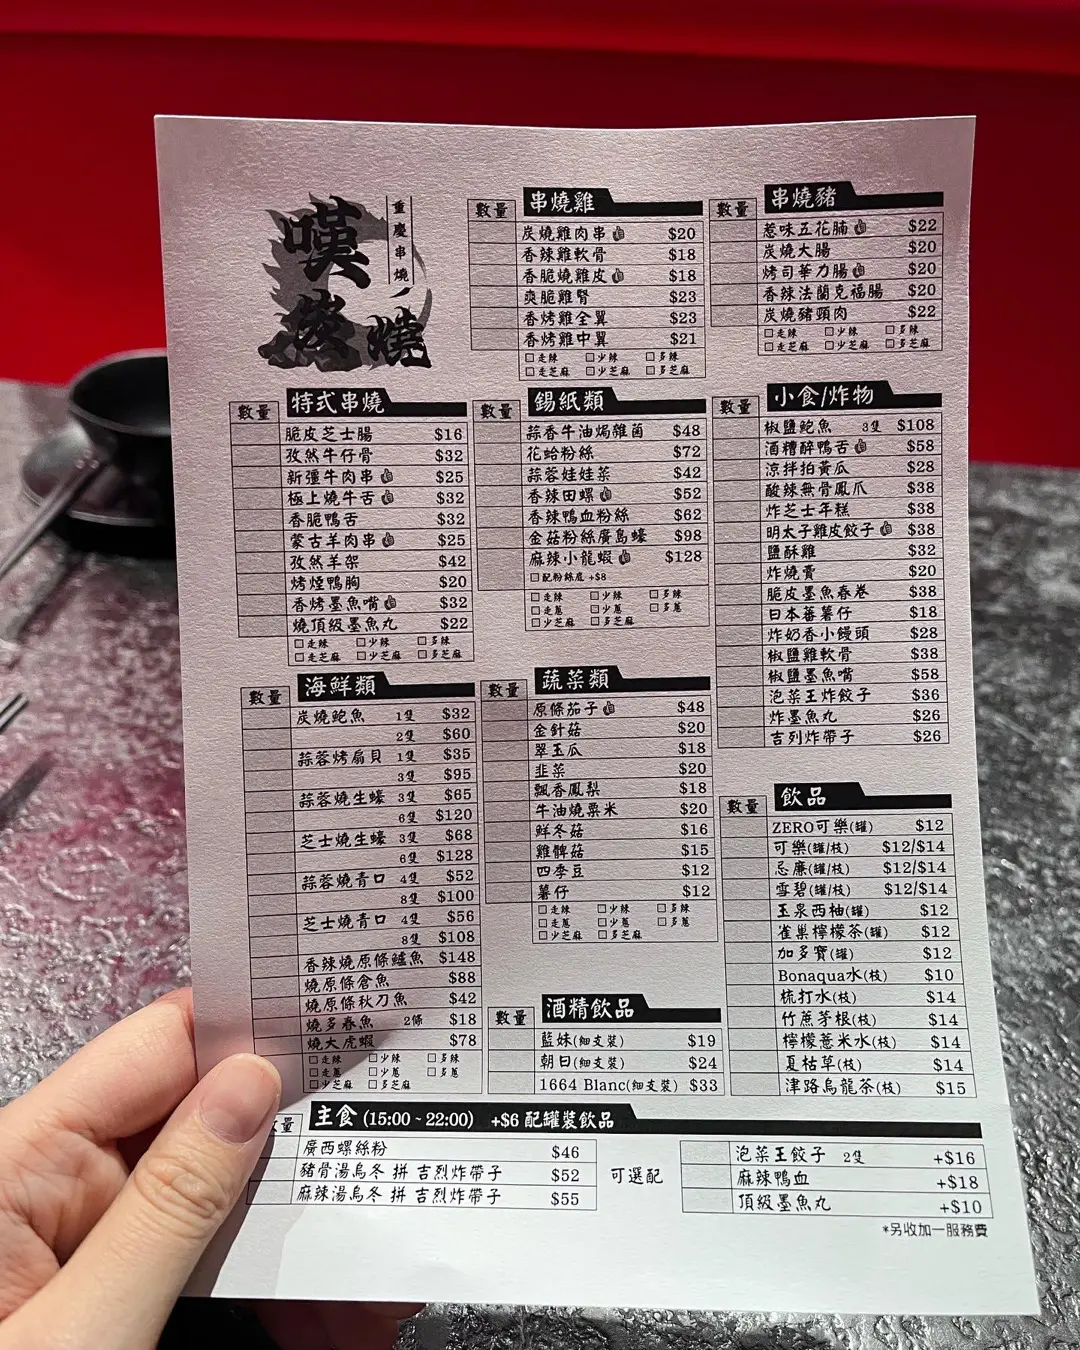 重慶串燒
嘆炭燒
數量 串燒雞
炭燒雞肉串 $20
香辣雞軟骨 $18
香脆燒雞皮 $18
爽脆雞腎 $23
香烤雞全翼 $23
香烤雞中翼 $21
□走辣 □少辣 □多辣
□走芝麻 □少芝麻 □多芝麻
數量 串燒豬
惹味五花腩 $22
炭燒大腸 $20
烤司華力腸 $20
香辣法蘭克福腸 $20
炭燒豬頸肉 $22
□走辣 □少辣 □多辣
□走芝麻 □少芝麻 □多芝麻
數量 特式串燒
脆皮芝士腸 $16
孜然牛仔骨 $32
新疆牛肉串 $25
極上燒牛舌 $32
香脆鴨舌 $32
蒙古羊肉串 $25
孜然羊架 $42
烤煙鴨胸 $20
香烤墨魚嘴 $32
燒頂級墨魚丸 $22
□走辣 □少辣 □多辣
□走芝麻 □少芝麻 □多芝麻
數量 錫紙類
蒜香牛油焗雜菌 $48
花蛤粉絲 $72
蒜蓉娃娃菜 $42
香辣田螺 $52
香辣鴨血粉絲 $62
金菇粉絲廣島蠔 $98
麻辣小龍蝦 $128
□配粉絲底 +$8
□走辣 □少辣 □多辣
□走蔥 □少蔥 □多蔥
□少芝麻 □多芝麻
數量 小食/炸物
椒鹽鮑魚 3隻 $108
酒糟醉鴨舌 $58
涼拌拍黃瓜 $28
酸辣無骨鳳爪 $38
炸芝士年糕 $38
明太子雞皮餃子 $38
鹽酥雞 $32
炸燒賣 $20
脆皮墨魚春卷 $38
日本蕃薯仔 $18
炸奶香小饅頭 $28
椒鹽雞軟骨 $38
椒鹽墨魚嘴 $58
泡菜王炸餃子 $36
炸墨魚丸 $26
吉列炸帶子 $26
數量 海鮮類
炭燒鮑魚 1隻 $32
2隻 $60
蒜蓉烤扇貝 1隻 $35
3隻 $95
蒜蓉燒生蠔 3隻 $65
6隻 $120
芝士燒生蠔 3隻 $68
6隻 $128
蒜蓉燒青口 4隻 $52
8隻 $100
芝士燒青口 4隻 $56
8隻 $108
香辣燒原條鱸魚 $148
燒原條倉魚 $88
燒原條秋刀魚 $42
燒多春魚 2條 $18
燒大虎蝦 $78
□走辣 □少辣 □多辣
□走蔥 □少蔥 □多蔥
□少芝麻 □多芝麻
數量 蔬菜類
原條茄子 $48
金針菇 $20
翠玉瓜 $18
韭菜 $20
飄香鳳梨 $18
牛油燒粟米 $20
鮮冬菇 $16
雞髀菇 $15
四季豆 $12
薯仔 $12
□走辣 □少辣 □多辣
□走蔥 □少蔥 □多蔥
□少芝麻 □多芝麻
數量 酒精飲品
藍妹(細支裝) $19
朝日(細支裝) $24
1664 Blanc(細支裝) $33
數量 飲品
ZERO可樂(罐) $12
可樂(罐/枝) $12/$14
忌廉(罐/枝) $12/$14
雪碧(罐/枝) $12/$14
玉泉西柚(罐) $12
雀巢檸檬茶(罐) $12
加多寶(罐) $12
Bonaqua水(枝) $10
梳打水(枝) $14
竹蔗茅根(枝) $14
檸檬薏米水(枝) $14
夏枯草(枝) $14
津路烏龍茶(枝) $15
量 主食 (15:00 ~ 22:00) +$6 配罐裝飲品
廣西螺絲粉 $46
豬骨湯烏冬 拼 吉烈炸帶子 $52
麻辣湯烏冬 拼 吉烈炸帶子 $55
可選配
泡菜王餃子 2隻 +$16
麻辣鴨血 +$18
頂級墨魚丸 +$10
*另收加一服務費